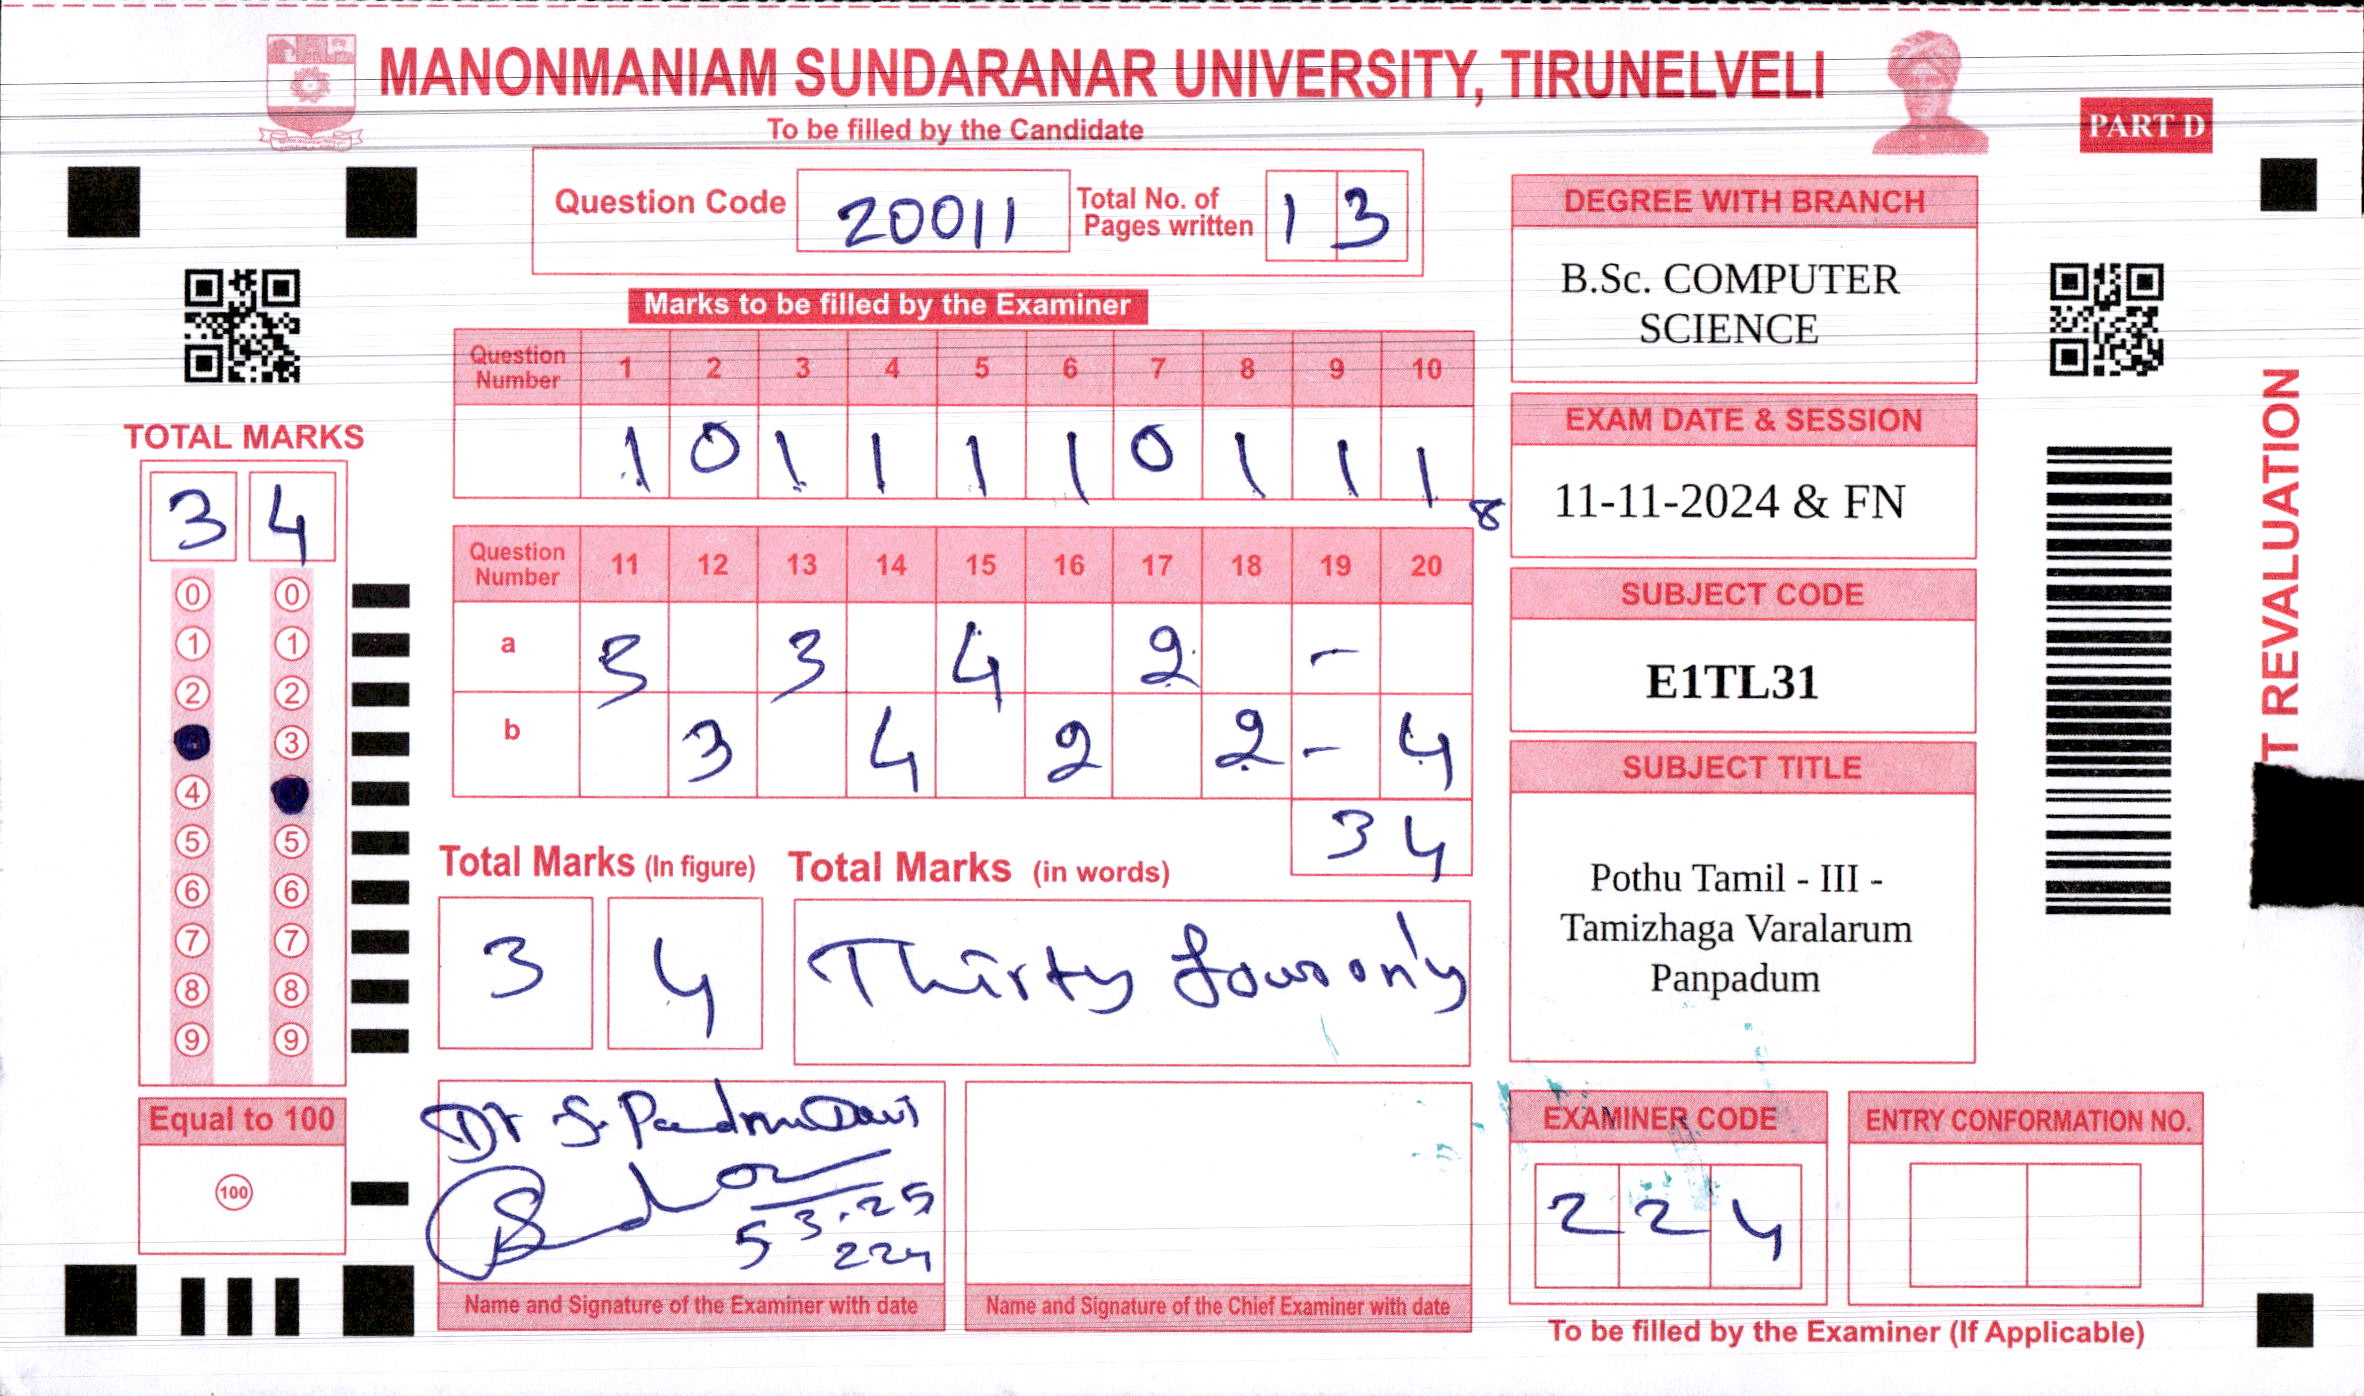 MANONMANIAM SUNDARANAR UNIVERSITY, TIRUNELVELI
To be filled by the Candidate
PART D
Question Code 20011 Total No. of Pages written 13
Marks to be filled by the Examiner
Question Number 1 2 3 4 5 6 7 8 9 10
1 0 1 1 1 1 0 1 1 1
8
Question Number 11 12 13 14 15 16 17 18 19 20
a 3 4 2 -
b 3 4 2 2 - 4
34
TOTAL MARKS
3 4
0 0
1 1
2 2
3
4
5 5
6 6
7 7
8 8
9 9
Equal to 100
100
Total Marks (In figure) Total Marks (in words)
3 4 Thirty four only
Dr S.
5 3.25
224
Name and Signature of the Examiner with date
Name and Signature of the Chief Examiner with date
DEGREE WITH BRANCH
B.Sc. COMPUTER
SCIENCE
EXAM DATE & SESSION
11-11-2024 & FN
SUBJECT CODE
E1TL31
SUBJECT TITLE
Pothu Tamil - III -
Tamizhaga Varalarum
Panpadum
EXAMINER CODE
2 2 4
ENTRY CONFORMATION NO.
To be filled by the Examiner (If Applicable)
T REVALUATION